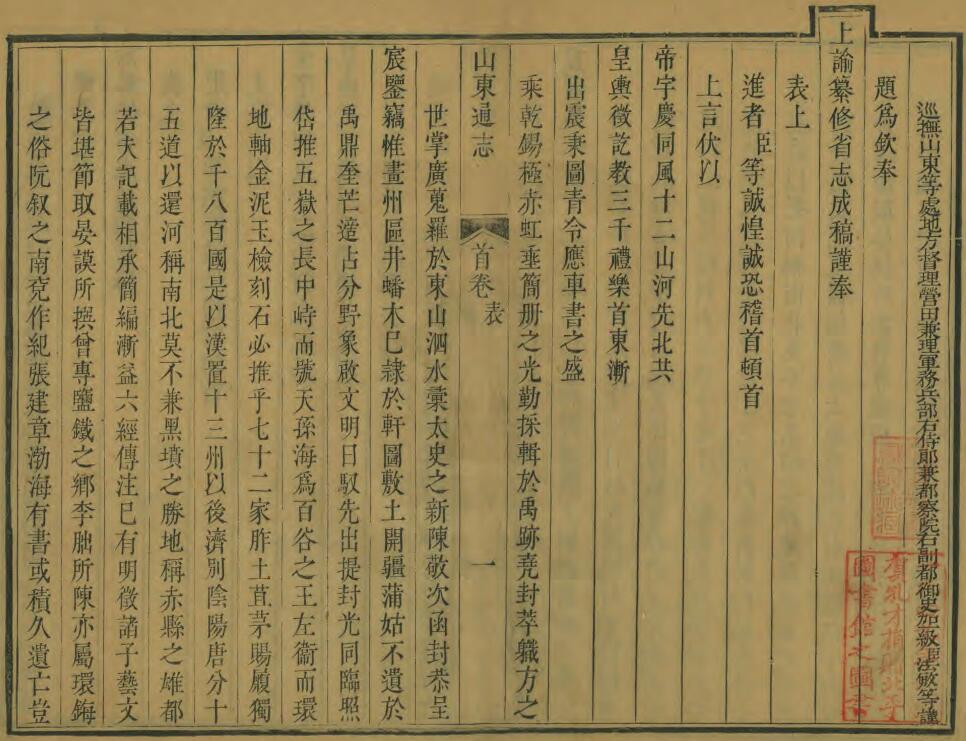 巡撫山東等處地方督理營田兼理軍務兵部右侍郎兼都察院右副都御史加級臣法敏等謹
題爲欽奉
上諭纂修省志成稿謹奉
表上
進者臣等誠惶誠恐稽首頓首
上言伏以
帝宇慶同風十二山河先北共
皇輿徵訖教三千禮樂首東漸
出震秉圖青令應車書之盛
乘乾錫極赤虹垂簡册之光勤採輯於禹跡堯封萃職方之
山東通志 首卷 表 一
世掌廣蒐羅於東山泗水彙太史之新陳敬次函封恭呈
宸鑒竊惟畫州區井蟠木已隷於軒圖敷土開疆蒲姑不遺於
禹鼎奎芒遙占分野象啟文明日馭先出提封光同臨照
岱推五嶽之長中峙而號天孫海爲百谷之王左衞而環
地軸金泥玉檢刻石必推乎七十二家胙土苴茅賜履獨
隆於千八百國是以漢置十三州以後濟別陰陽唐分十
五道以還河稱南北莫不兼黑墳之勝地稱赤縣之雄都
若夫記載相承簡編漸益六經傳注已有明徵諸子藝文
皆堪節取晏謨所撰曾專鹽鐵之鄉李朏所陳亦屬環海
之俗阮叙之南兗作紀張建章渤海有書或積久遺亡豈
圖書館之圖書